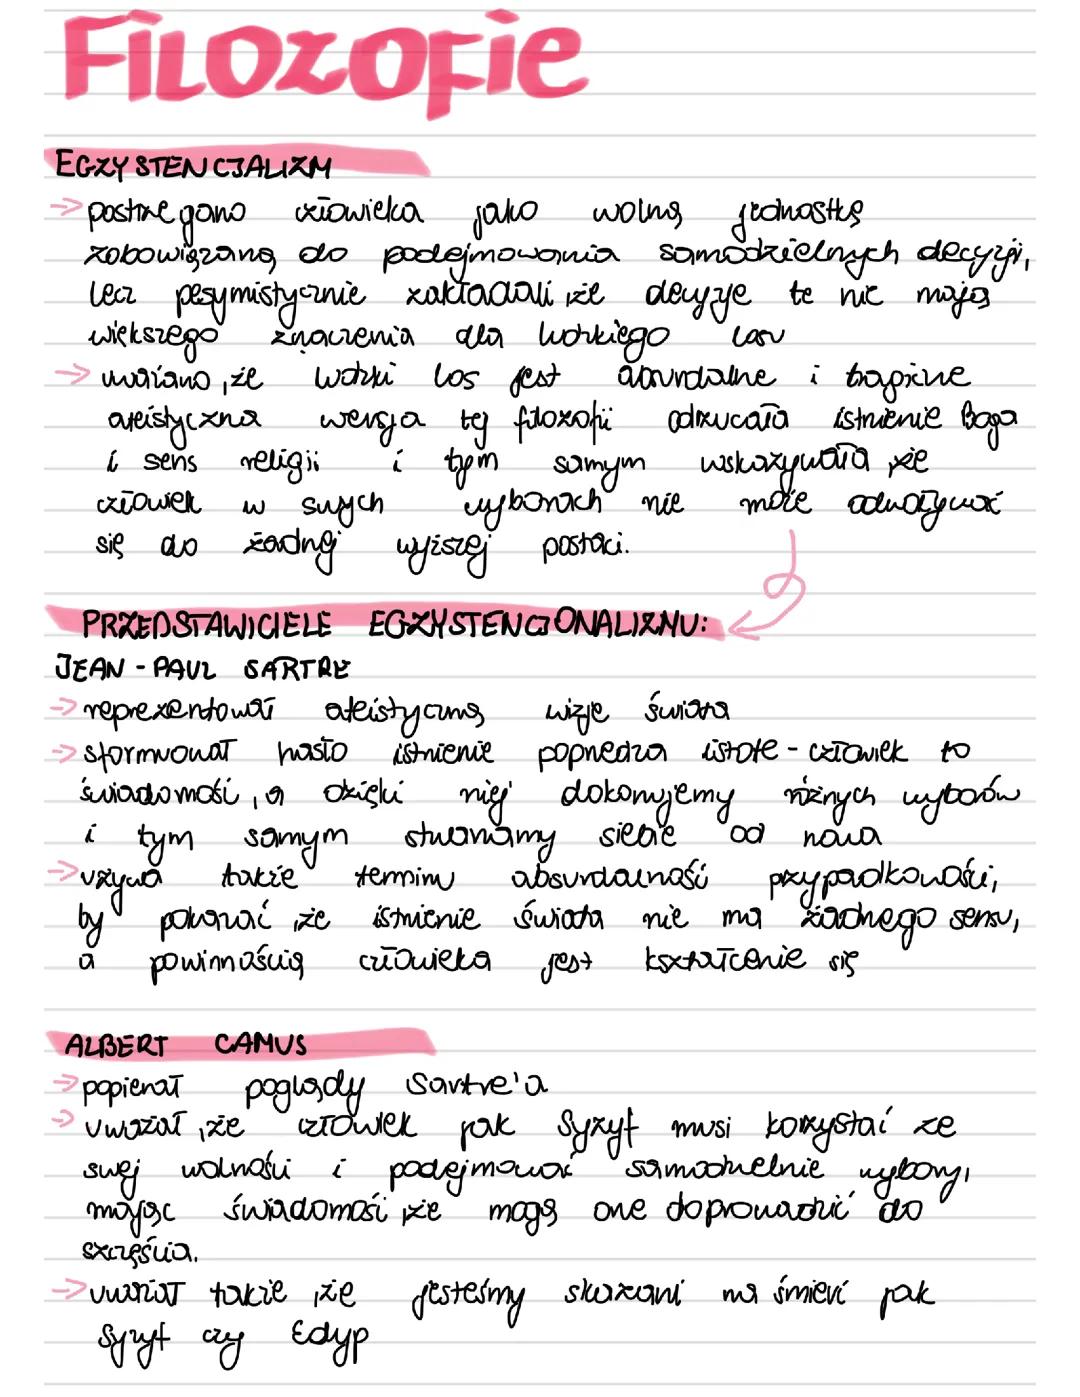 Filozofie
EGZYSTENCJALIZM
→ postrzegano człowieka jako wolną jednostkę
zobowiązaną do podejmowania samodzielnych decyzji,
lecz pesymistycznie zakładali, że decyzje te nie mają
większego znaczenia dla ludzkiego losu
→ uważano, że ludzki los jest absurdalne i tragiczne
ateistyczna wersja tej filozofii odrzucała istnienie Boga
i sens religii i tym samym wskazywała, że
człowiek w swych wyborach nie może odwoływać
się do żadnej wyższej postaci.
PRZEDSTAWICIELE EGZYSTENCJONALIZMU:
JEAN - PAUL SARTRE
→ reprezentował ateistyczną wizje świata
→ sformuował hasło istnienie poprzedza istote - człowiek to
świadomość, a dzięki niej dokonujemy różnych wyborów
i tym samym stwarzamy siebie od nowa
→ używa także terminu absurdalność przypadkowości,
by pokazać, że istnienie świata nie ma żadnego sensu,
a powinnością człowieka jest kształcenie się
ALBERT CAMUS
→ popierał poglądy Sartre'a
→ uważał, że człowiek jak Syzyf musi korzystać ze
swej wolności i podejmować samodzielnie wybory,
mając świadomość, że mogą one doprowadzić do
szczęścia.
→ uważał także, że jesteśmy skazani na śmierć jak
Syzyf czy Edyp